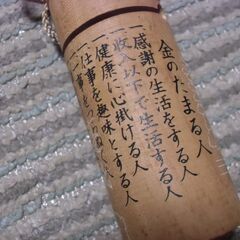 金のたまる人
一感謝の生活をする人
一収入以下で生活する人
一健康に心掛ける人
一仕事を趣味とする人